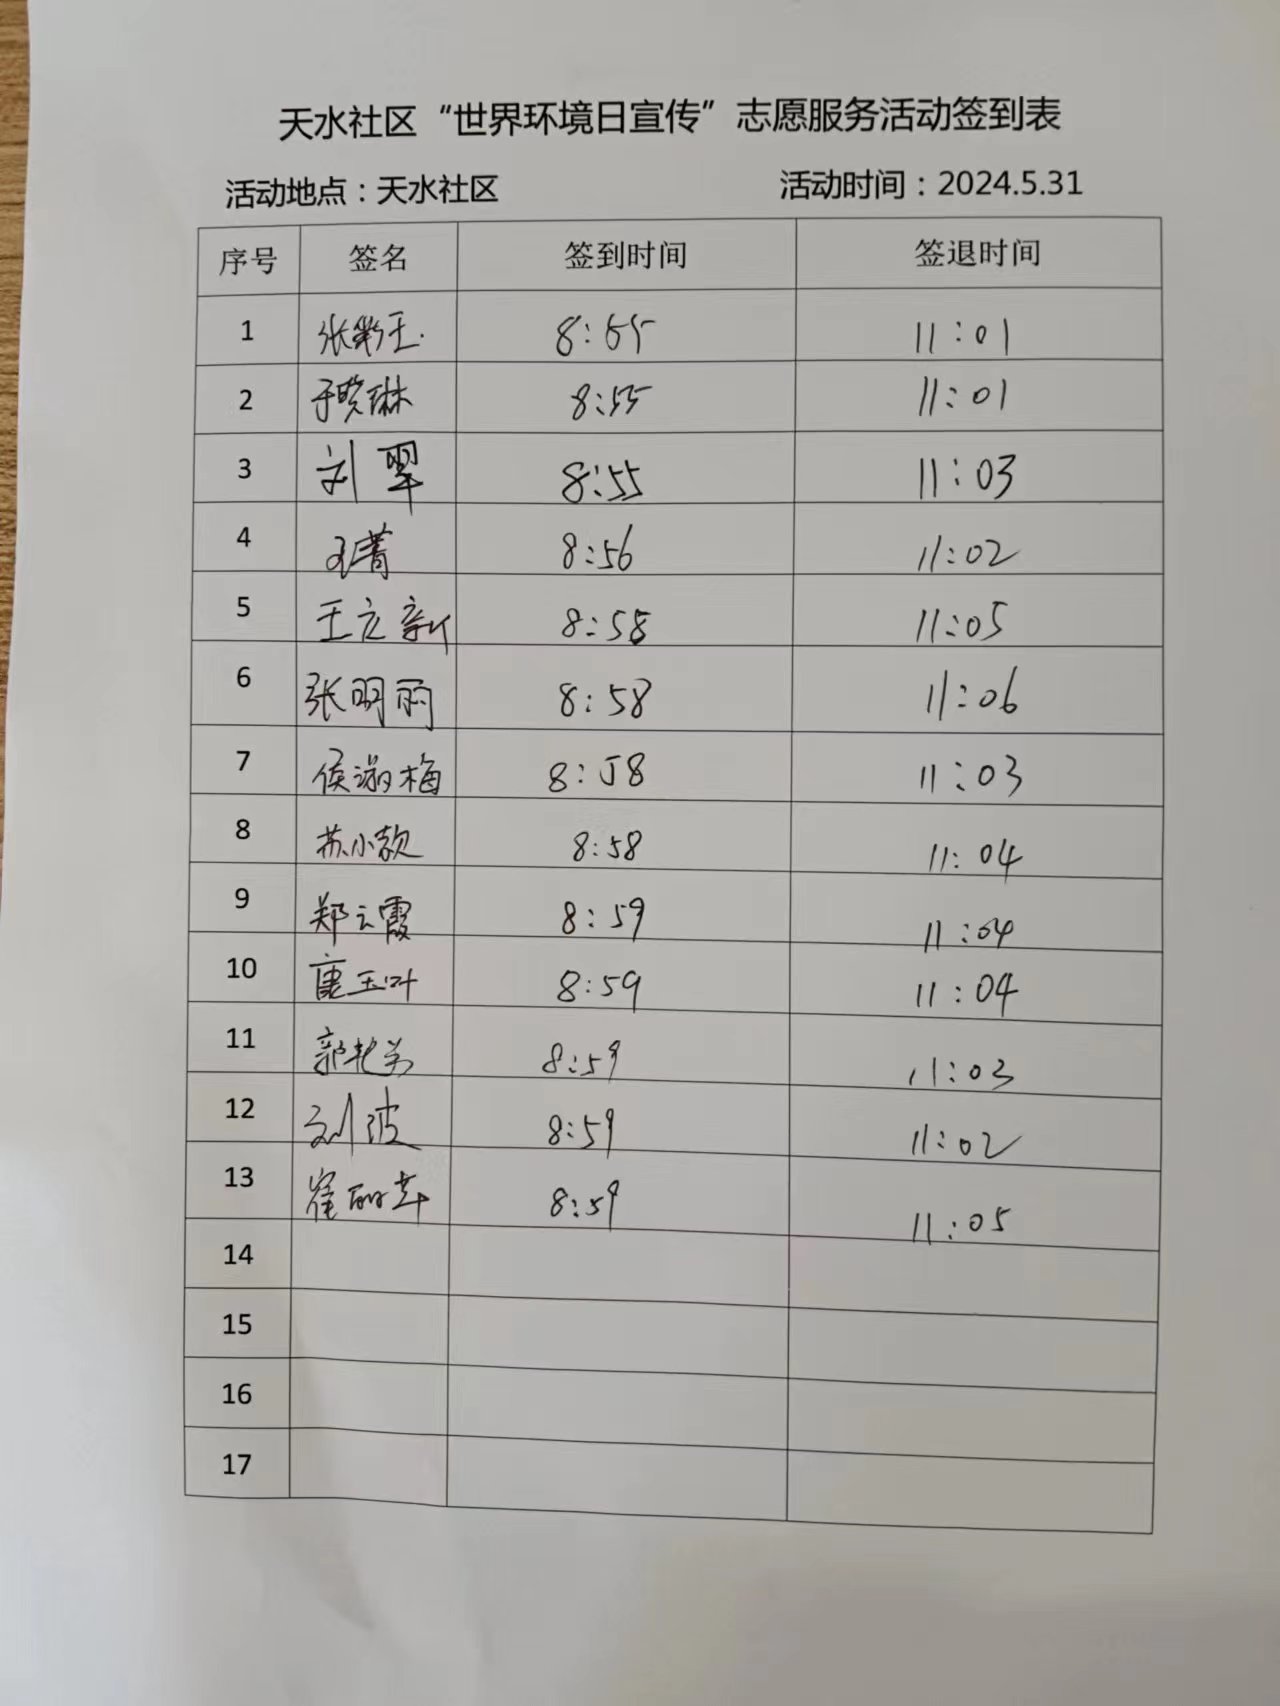 天水社区“世界环境日宣传”志愿服务活动签到表
活动地点：天水社区 活动时间：2024.5.31
序号 签名 签到时间 签退时间
1 张 8:55 11:01
2 于晓琳 8:55 11:01
3 刘翠 8:55 11:03
4 菁 8:56 11:02
5 王立新 8:58 11:05
6 张明丽 8:58 11:06
7 侯淑梅 8:58 11:03
8 苏小款 8:58 11:04
9 郑云霞 8:59 11:04
10 唐玉叶 8:59 11:04
11 郭艳 8:59 11:03
12 刘波 8:59 11:02
13 崔丽华 8:59 11:05
14
15
16
17